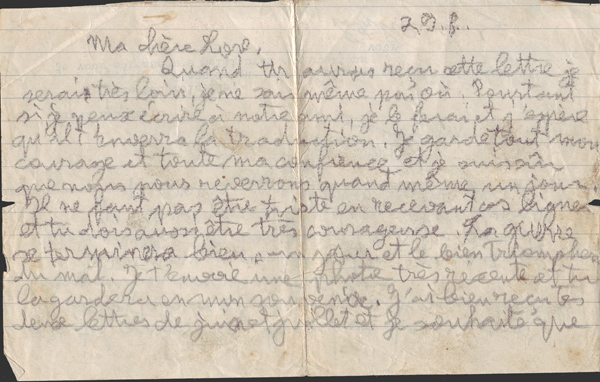 29.8.
Ma chère Rose,
Quand tu auras reçu cette lettre je
serais très loin, je ne sais même pas où. Pourtant
si je peux écrire à notre ami, je le ferai et j'espère
qu'il t'enverra la traduction. Je garde tout mon
courage et toute ma confiance et je suis sûr
que nous nous reverrons quand même un jour.
Il ne faut pas être triste en recevant ces lignes
et tu dois aussi être très courageuse. La guerre
se terminera bien, un jour et le bien triomphera
du mal. Je t'envoie une photo très récente et tu
la gardera en mon souvenir. J'ai bien reçu tes
deux lettres de juin et juillet et je souhaite que